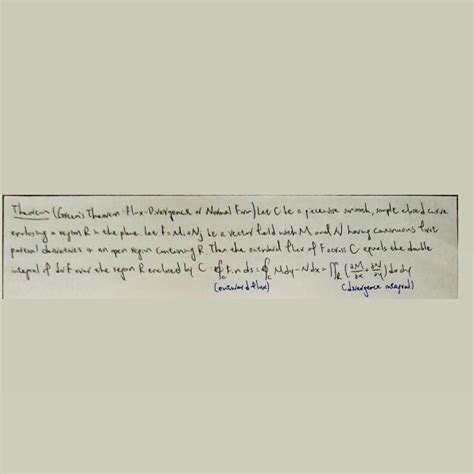 Theorem (Green's Theorem: Flux-Divergence or Normal Form) Let C be a piecewise smooth, simple closed curve
enclosing a region R in the plane. Let F = Mi + Nj be a vector field with M and N having continuous first
partial derivatives in an open region containing R. Then the outward flux of F across C equals the double
integral of div F over the region R enclosed by C. ∮_C F.n ds = ∮_C Mdy - Ndx = ∬_R (∂M/∂x + ∂N/∂y) dxdy
(outward flux) (divergence integral)